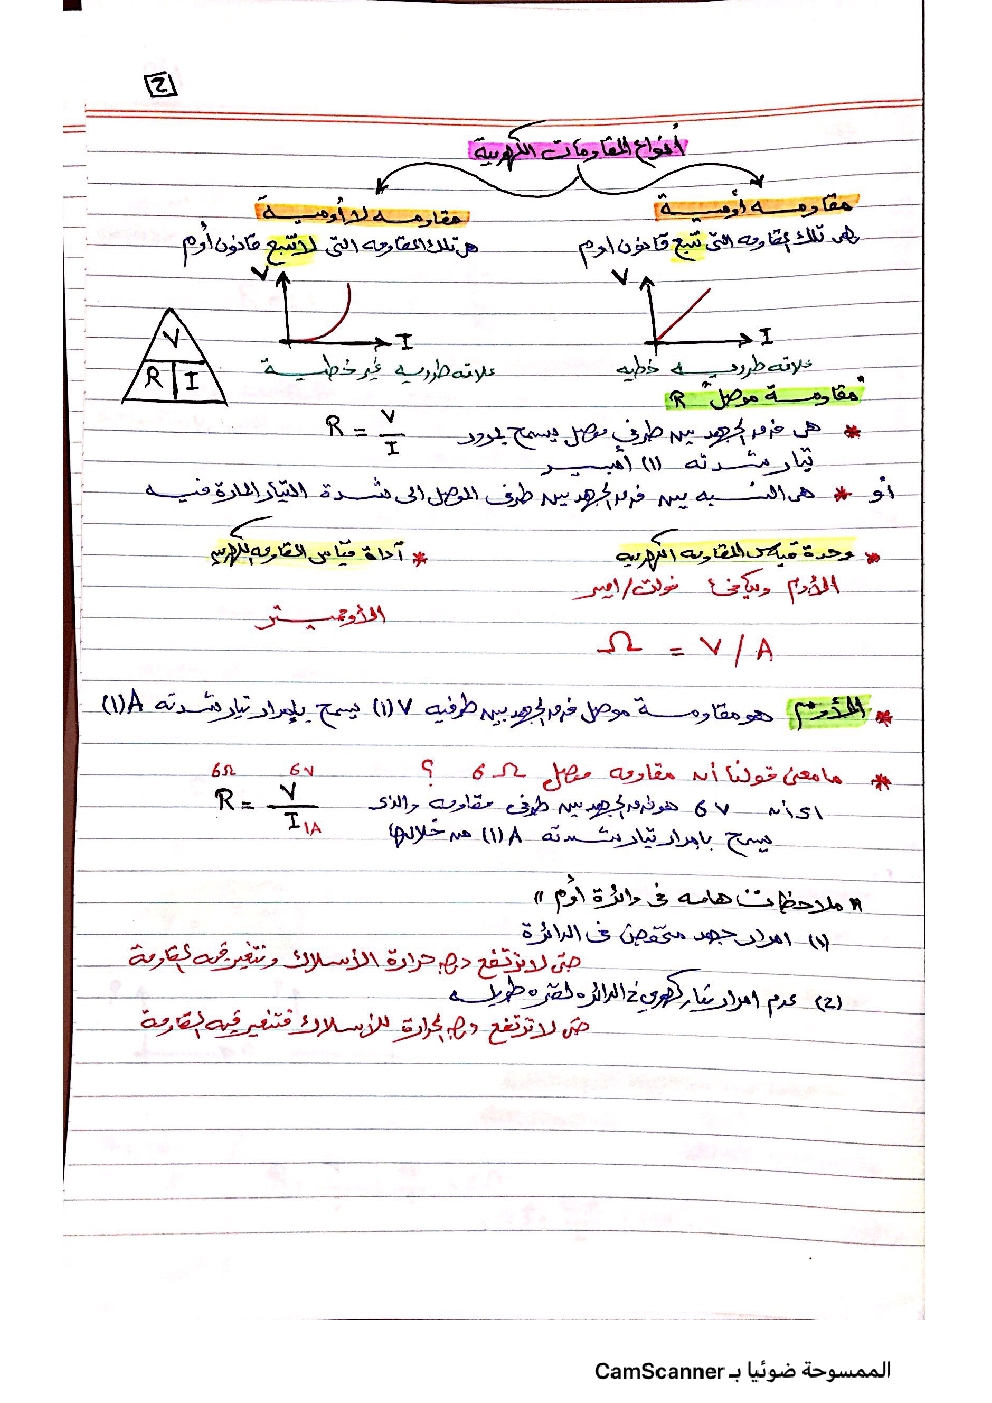 2
أنواع المقاومات الكهربية
مقاومه أومية
مقاومه لا أومية
هى تلك المقاومه التى تتبع قانون اوم
هى تلك المقاومه التى لا تتبع قانون أوم
V
I
V
I
V
R I
علاقه طرديه خطيه
علاقه طرديه غير خطية
"مقاومة موصل" R
* هى فرق الجهد بين طرفي موصل يسمح بمرور
تيار شدته (1) أمبير
R = V / I
أو * هى النسبه بين فرق الجهد بين طرفى الموصل الى شدة التيار المارة فيه
* وحدة قياس المقاومه الكهربيه
الأوم ويكافئ فولت/امبير
Ω = V / A
* أداة قياس المقاومه الكهربيه
الأوميتر
* الأوم هو مقاومة موصل فرق الجهد بين طرفيه (1) V يسمح بإمرار تيار شدته (1) A
* ما معنى قولنا أن مقاومه موصل 6 Ω ؟
اى أن 6 V هو فرق الجهد بين طرفى مقاومه والذى
يسمح بامرار تيار شدته (1) A من خلالها
6Ω 6V
R = V / I 1A
" ملاحظات هامه فى دائرة أوم "
(1) امرار جهد منخفض فى الدائرة
حتى لا ترتفع درجه حرارة الأسلاك وتتغير قيمه المقاومة
(2) عدم امرار تيار كهربي في الدائره لفتره طويله
حتى لا ترتفع درجه الحرارة للأسلاك فتتغير قيمه المقاومة
الممسوحة ضوئيا بـ CamScanner